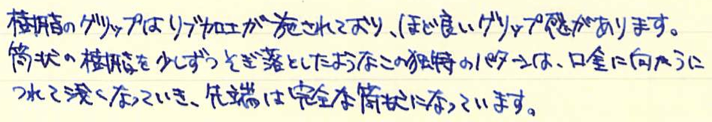 樹脂のグリップはリブ加工が施されており、ほど良いグリップ感があります。
筒状の樹脂を少しずつそぎ落としたようなこの独特のパターンは、口金に向かうに
つれて浅くなっていき、先端は完全な筒状になっています。